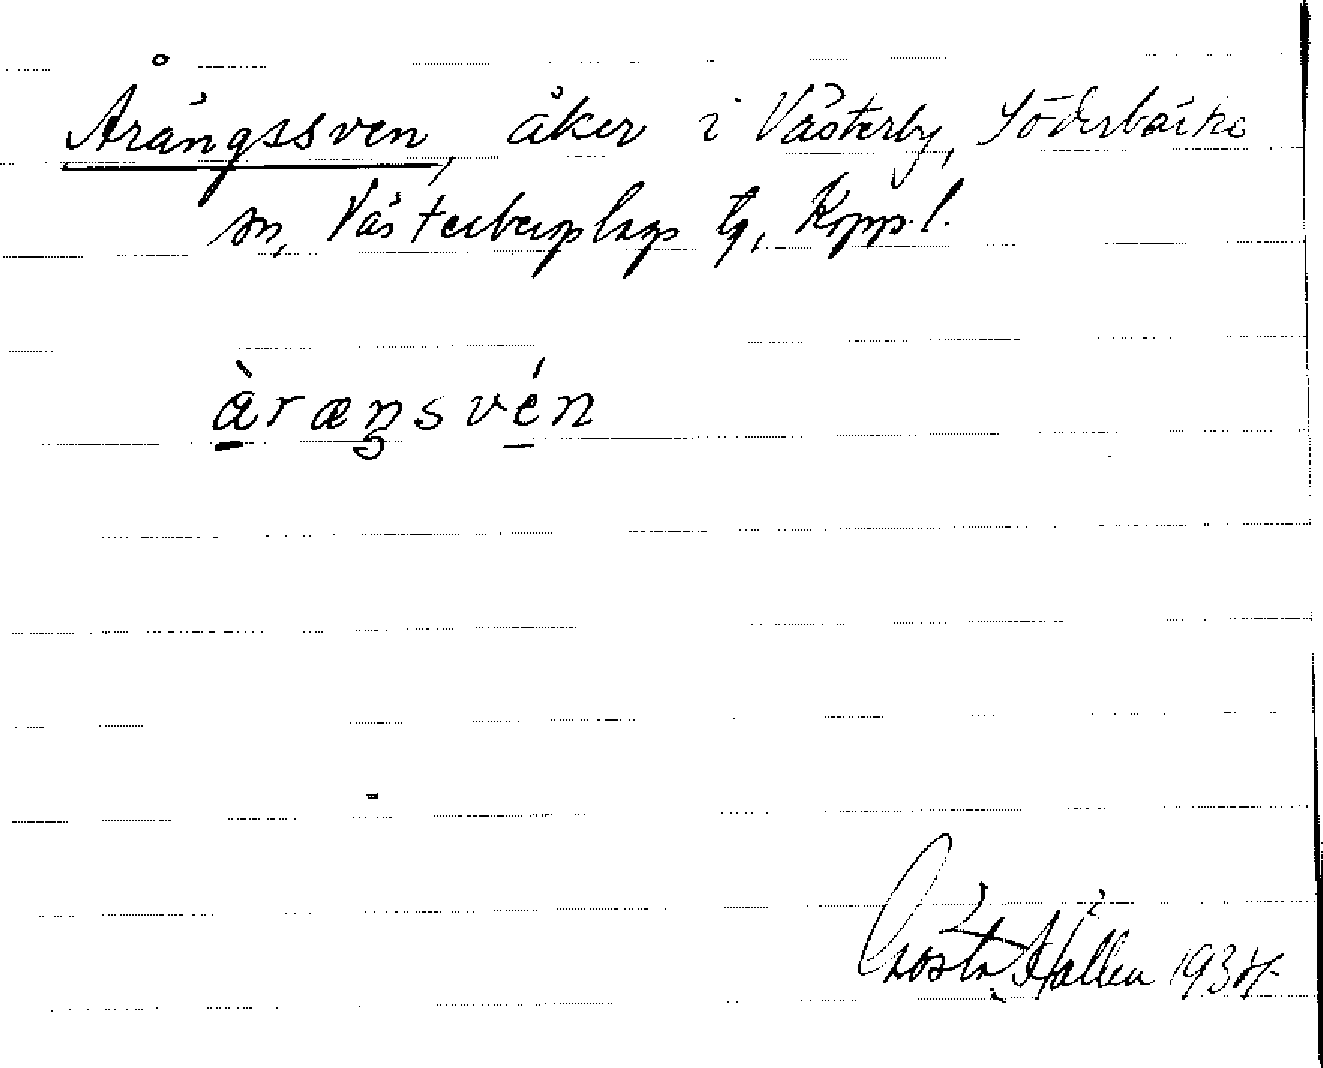 Årängssven, åker i Västerby, Söderbärke
sn, Västerbergslags tg, Koppl.
àræŋsvén
Gösta Hållen 1934